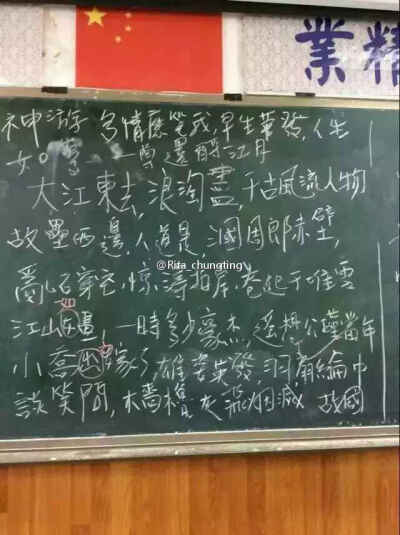 業精
神游 多情應笑我,早生華發,人生
如夢 一尊還酹江月
大江東去,浪淘盡,千古風流人物
故壘西邊,人道是,國周郎赤壁,
@Rita_chungting
亂石穿空,惊濤拍岸,卷起千堆雪
江山如畫,一時多少豪杰,遥想公瑾當年
小喬出嫁了,雄姿英發,羽扇綸巾
談笑間,檣櫓灰飛烟滅 故國